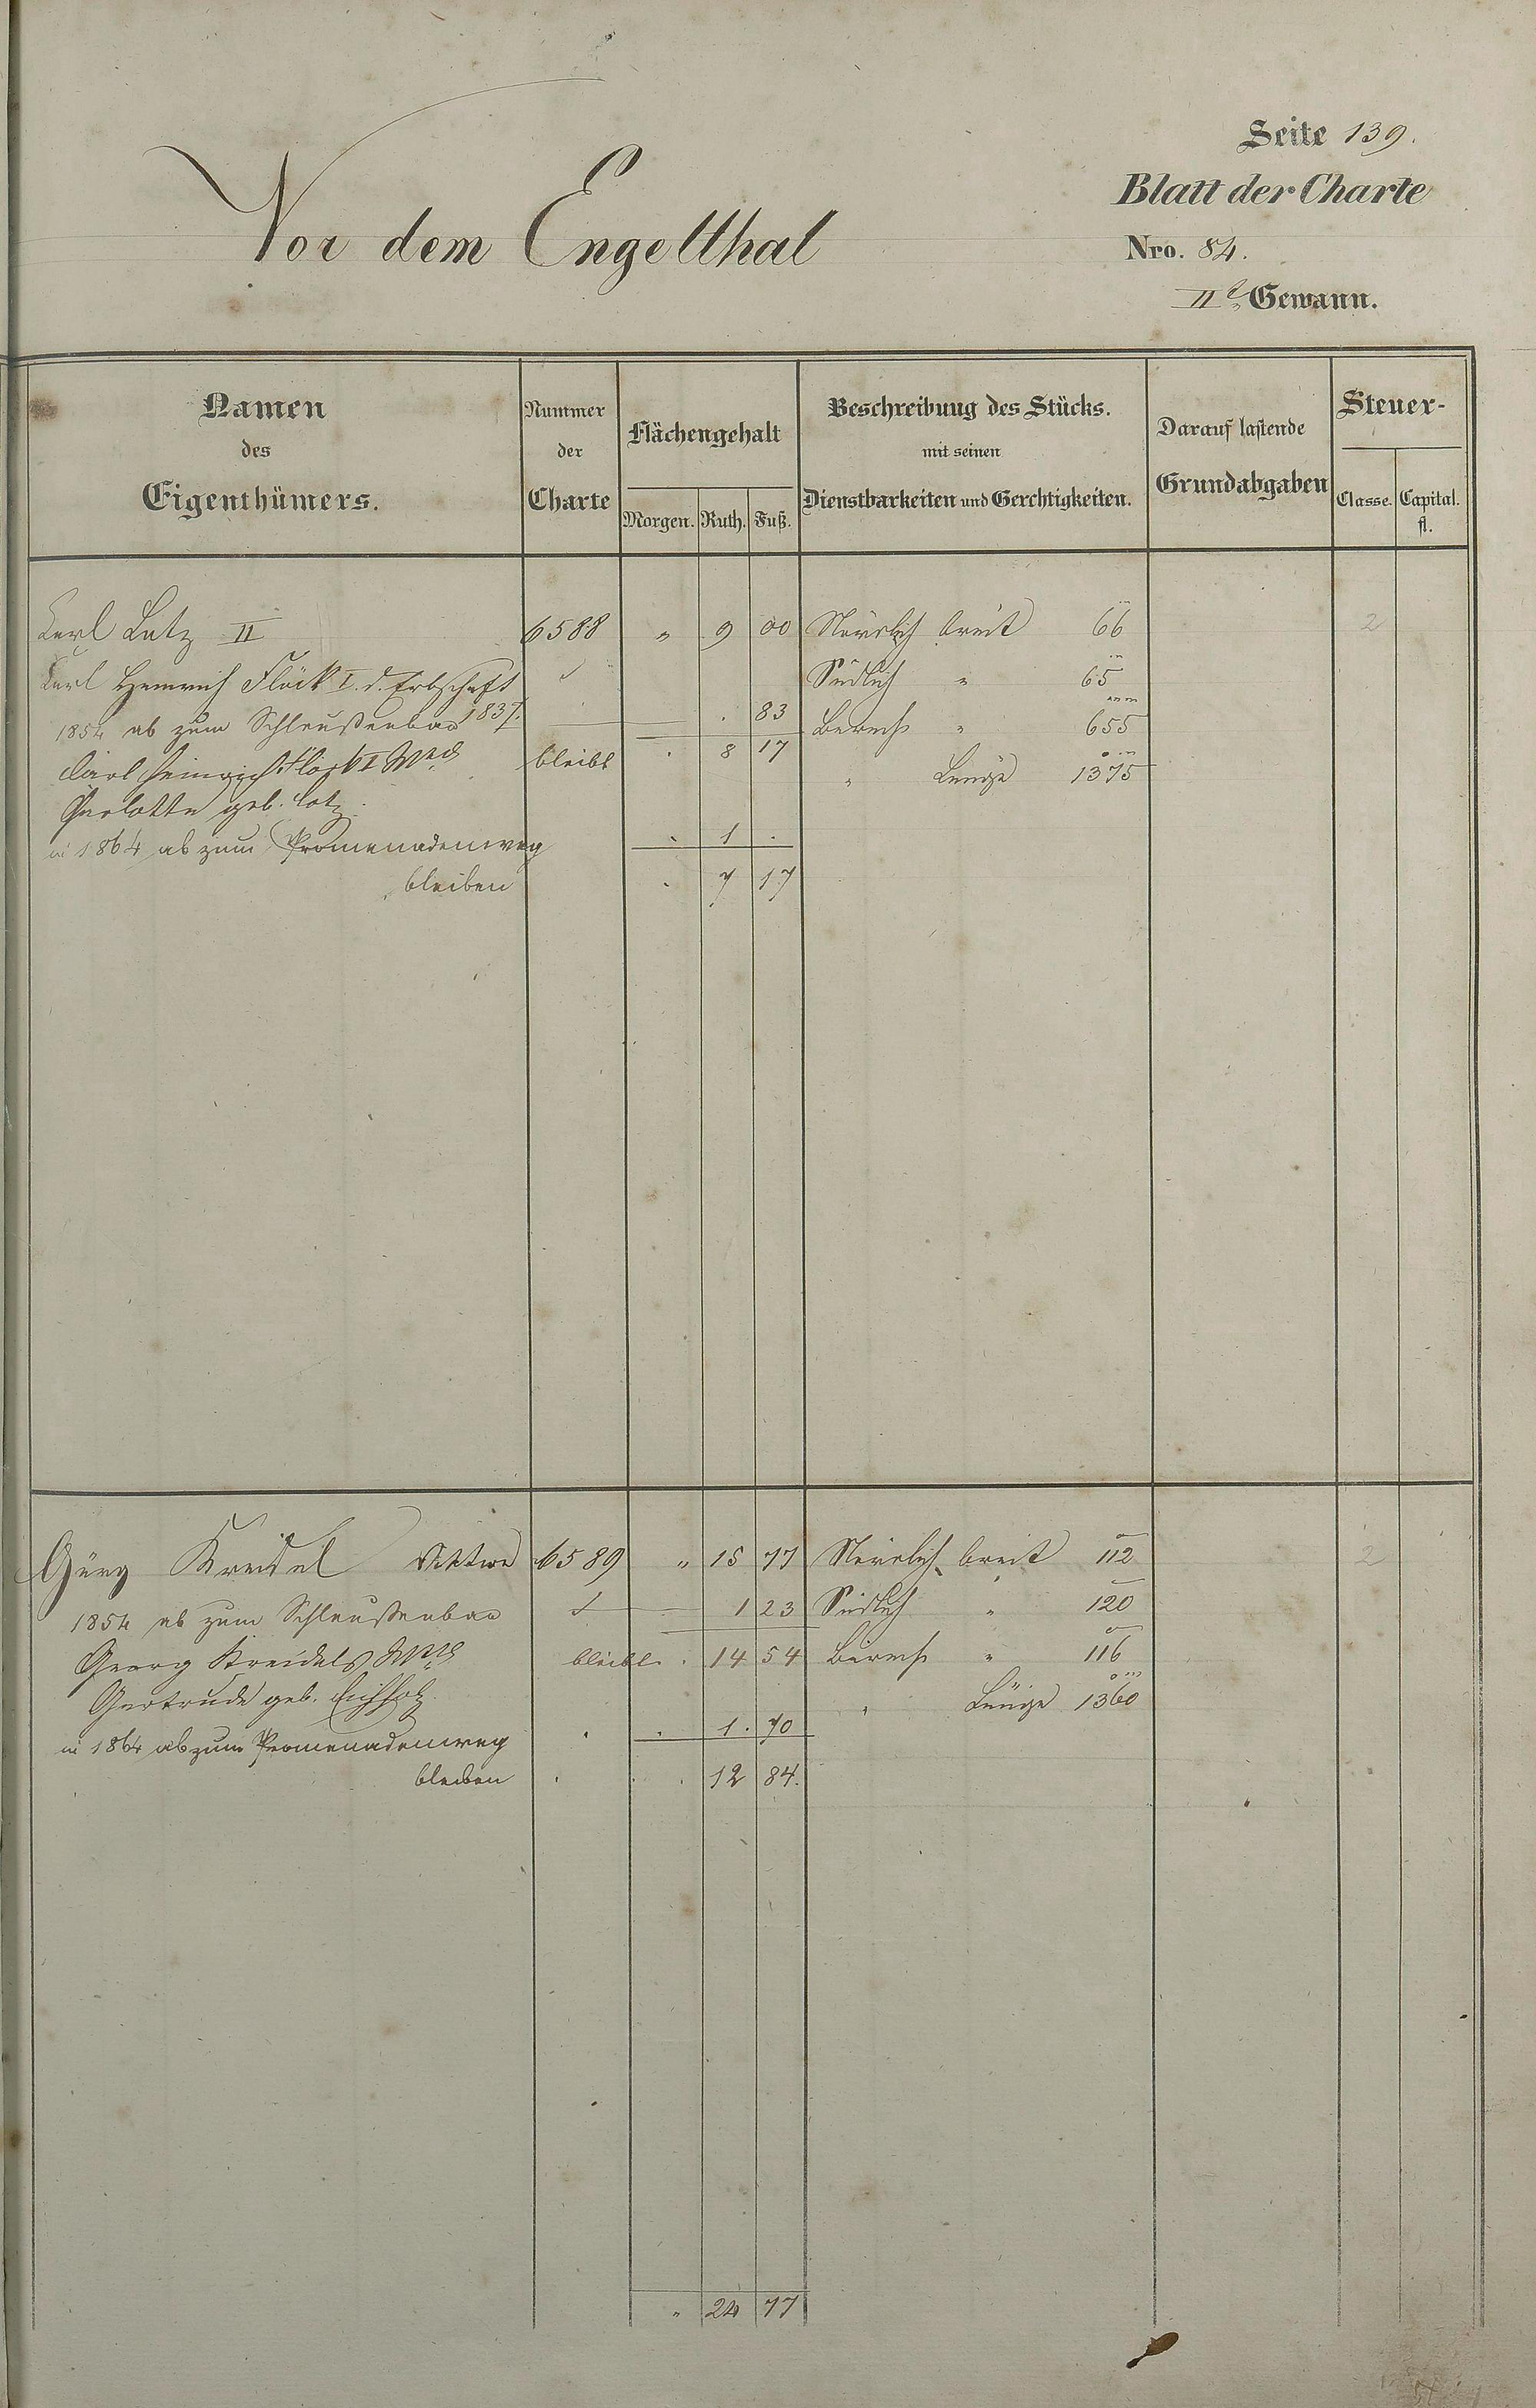 Seite 139.
Blatt der Charte
Vor dem Engelthal
Nro. 84.
IIt Gewann.
Namen des Eigenthümers.
Nummer der Charte
Flächengehalt
Morgen. Ruth. Fuß.
Beschreibung des Stücks. mit seinen Dienstbarkeiten und Gerchtigkeiten.
Darauf lastende Grundabgaben
Steuer-
Classe. Capital. fl.
Karl Lutz II 6588 " 9 00 Nördlich breit 66 2
Karl Heinrich Flöck I. d. Erbschaft Südlich " 65
1837.
1854 ab zum Schleußenbau . 83 Berech " 655
Carl Heinrich Flöck I Wwe bleibt . 8 17
" Länge 1375
geb. Lotz
in 1864 ab zum Promenadenweg . 1 .
bleiben . 7 17
Görg Kreidel Wittwe 6589 " 15 77 Nördlich breit 112 2
1854 ab zum Schleußenbau 1 23 Südlich " 120
Georg Kreidels Wwe bleibt . 14 54 Berech " 116
Gertrude geb. Eichholz " Länge 1360
in 1864 ab zum Promenadenweg . . 1. 70
bleiben . . 12 84.
" 24 77